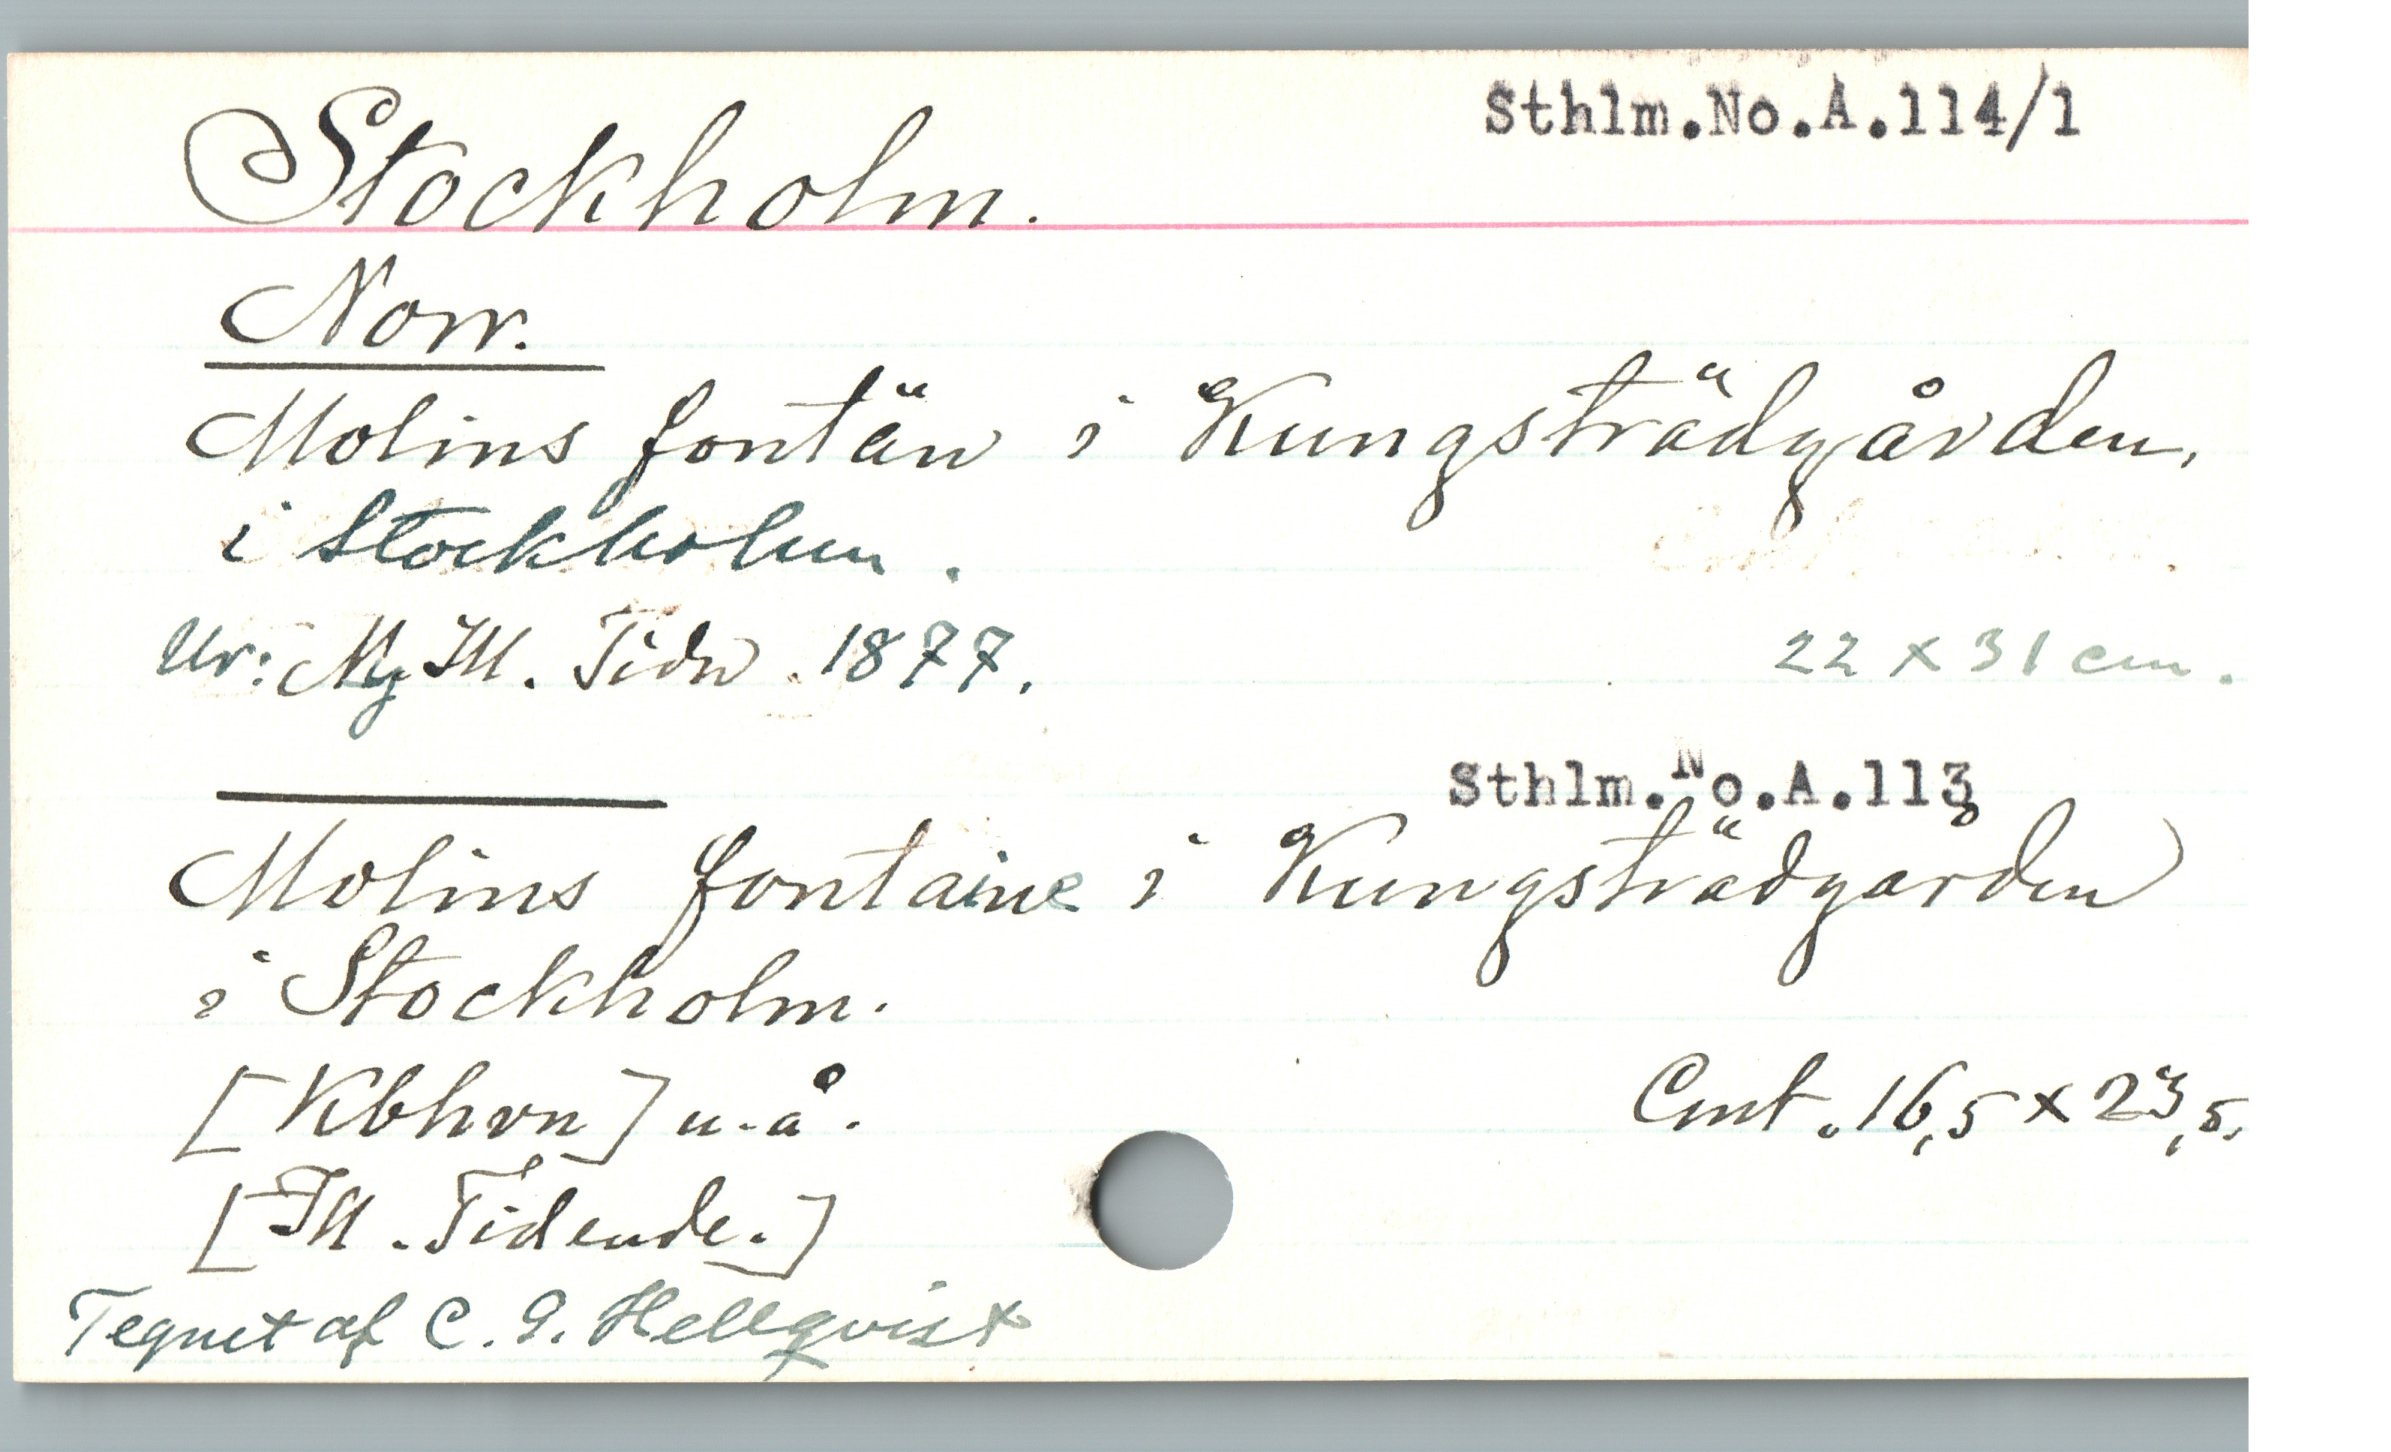 Sthlm.No.A.114/1
Stockholm.
Norr.
Molins fontän i Kungsträdgården,
i Stockholm.
Ur: Ny Ill. Tidn. 1877.
22 x 31 cm.
Sthlm.No.A.113
Molins fontaine i Kungsträdgarden
i Stockholm.
[Kbhvn] u.å.
Cmt. 16,5 x 23,5.
[Ill. Tidende.]
Tegnet af C. G. Hellqvist